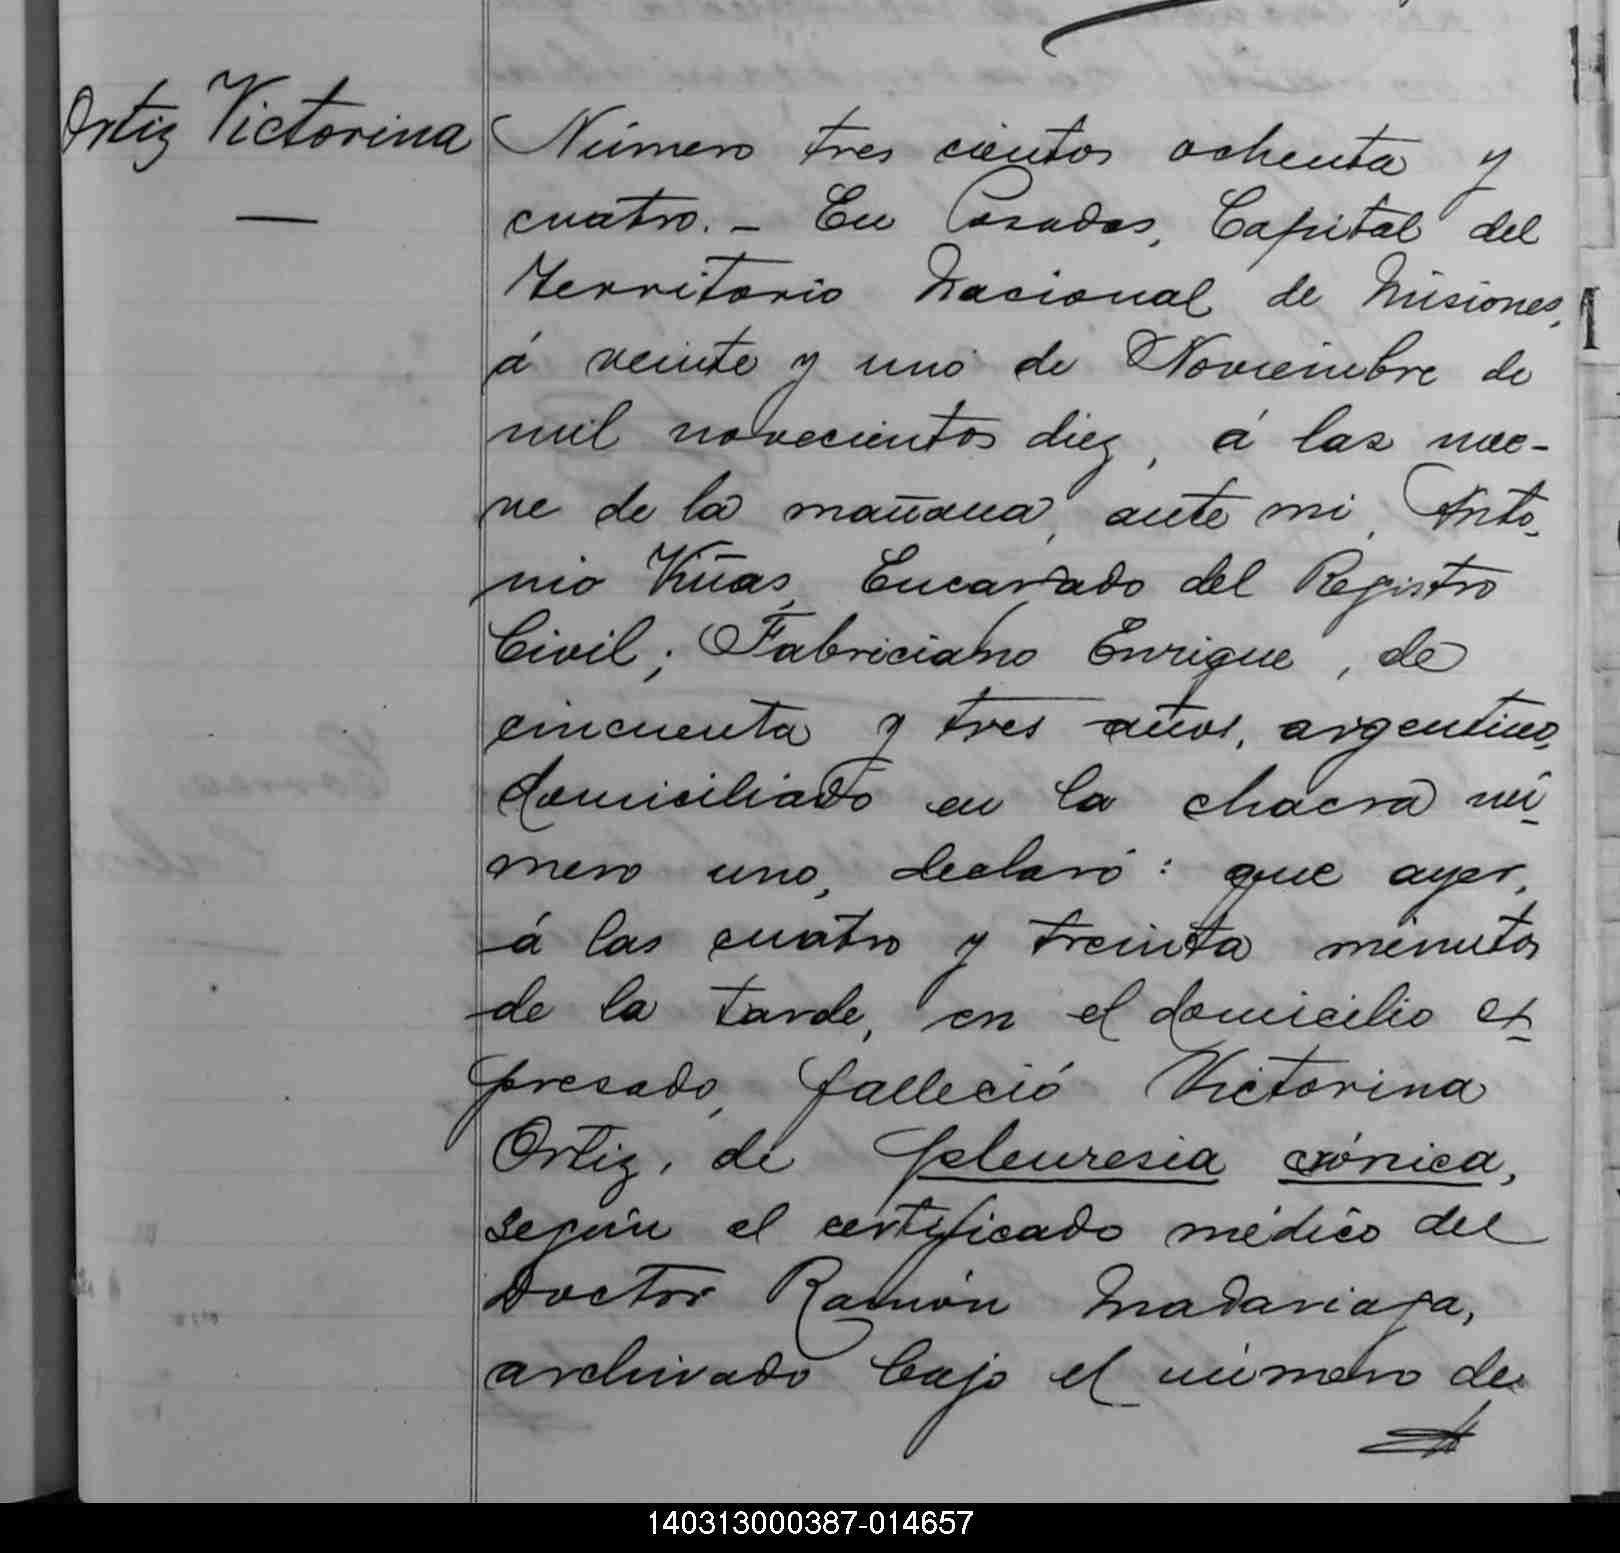 Ortiz Victorina
Número tres cientos ochenta y
cuatro. - En Posadas, Capital del
Territorio Nacional de Misiones,
á veinte y uno de Noviembre de
mil novecientos diez, á las nue-
ve de la mañana, ante mi, Anto-
nio Viñas, Encargado del Registro
Civil; Fabriciano Enrique, de
cincuenta y tres años, argentino,
domiciliado en la chacra nú-
mero uno, declaró: que ayer,
á las cuatro y treinta minutos
de la tarde, en el domicilio ex-
presado, falleció Victorina
Ortiz, de pleuresia crónica,
según el certificado médico del
Doctor Ramón Madariaga,
archivado bajo el número de
140313000387-014657